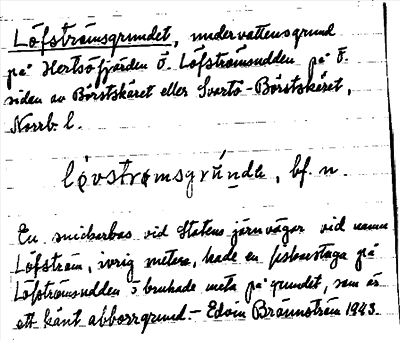 Löfströmsgrundet, undervattensgrund
på Hertsöfjärden Ö. Löfströmsudden på Ö.
sidan av Börstskäret eller Svartö-Börstskäret,
Norrb. l.
lövstrømsgrúndə, bf. n.
En snickarbas vid Statens järnvägar vid namn
Löfström, ivrig metare, hade en fiskarstuga på
Löfströmsudden o brukade meta på grundet, som är
ett känt abborrgrund. – Edvin Brännström 1943.